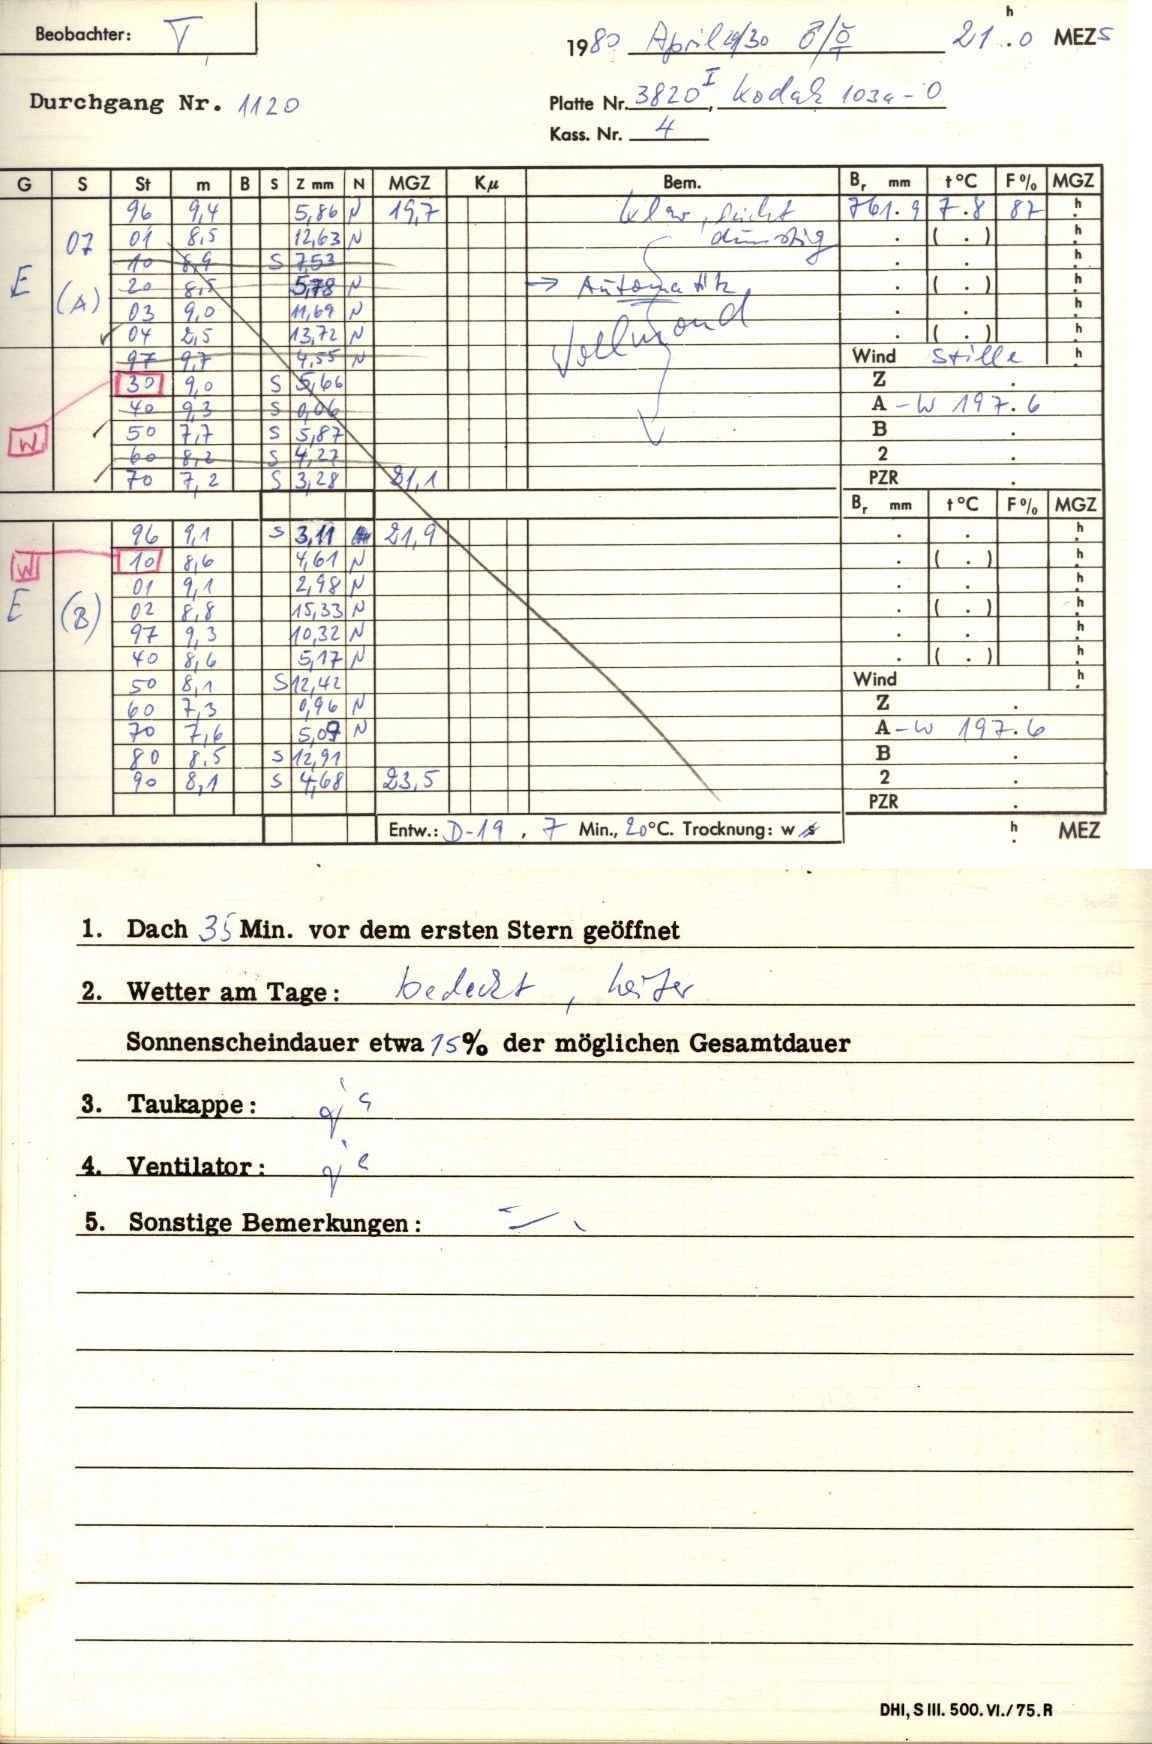 Beobachter: T
1980 April 29/30 21h.0 MEZS
Durchgang Nr. 1120
Platte Nr. 3820 I, Kodak 103a-O
Kass. Nr. 4
G S St m B S Z mm N MGZ Kµ Bem. Br mm t°C F% MGZ
96 9,4 5,86 N 19,7 klar, leicht 761.9 7.8 87 h
07 01 8,5 12,63 N dunstig . ( . ) h
10 8,9 S 7,53 . . h
E 20 8,5 5,78 N → Automatik . ( . ) h
(A) 03 9,0 11,69 N Vollmond . . h
04 2,5 13,72 N . ( . ) h
97 9,7 4,55 N Wind Stille h
30 9,0 S 5,66 Z .
40 9,3 S 0,06 A -W 197.6
W 50 7,7 S 5,87 B .
60 8,2 S 4,27 2 .
70 7,2 S 3,28 21,1 PZR .
Br mm t°C F% MGZ
96 9,1 S 3,11 21,9 . . h
W 10 8,6 4,61 N . ( . ) h
01 9,1 2,98 N . . h
E (B) 02 8,8 15,33 N . ( . ) h
97 9,3 10,32 N . . h
40 8,6 5,17 N . ( . ) h
50 8,1 S 12,42 Wind h
60 7,3 0,96 N Z .
70 7,6 5,09 N A -W 197.6
80 8,5 S 12,91 B .
90 8,1 S 4,68 23,5 2 .
PZR .
Entw.: D-19, 7 Min., 20°C. Trocknung: w s h. MEZ
1. Dach 35 Min. vor dem ersten Stern geöffnet
2. Wetter am Tage: bedeckt, heiter
Sonnenscheindauer etwa 15% der möglichen Gesamtdauer
3. Taukappe: ja
4. Ventilator: ja
5. Sonstige Bemerkungen:
DHI, S III. 500. VI./75. R